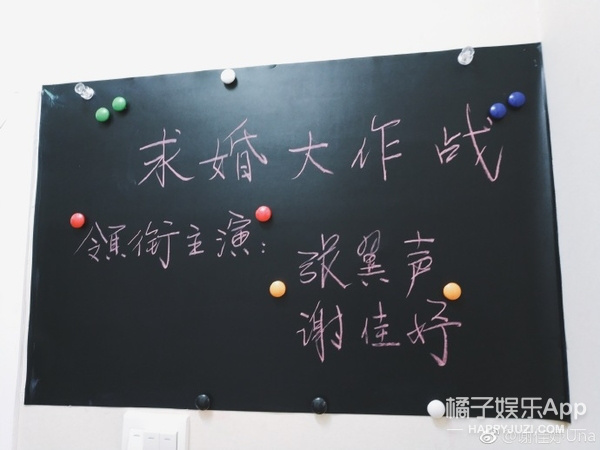 求婚大作战
领衔主演：
张翼声
谢佳妤
橘子娱乐App
HAPPYJUZI.COM
@谢佳妤Una